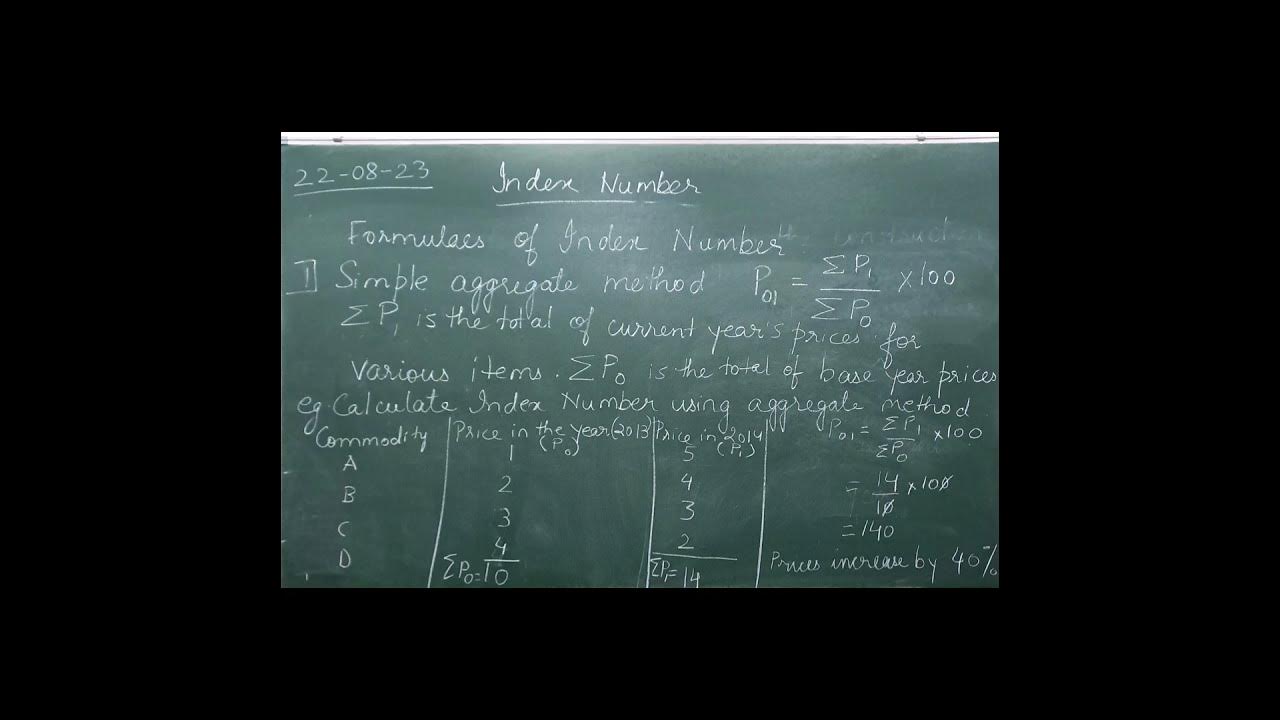 22-08-23 Index Number
Formulaes of Index Number
I] Simple aggregate method P₀₁ = ΣP₁/ΣP₀ ×100
ΣP₁ is the total of current year's prices for
various items. ΣP₀ is the total of base year prices
eg. Calculate Index Number using aggregate method
Commodity | Price in the year (2013) (P₀) | Price in 2014 (P₁) | P₀₁ = ΣP₁/ΣP₀ ×100
A 1 5
B 2 4 = 14/10 ×100
C 3 3 = 140
D 4 2 Prices increase by 40%
ΣP₀=10 ΣP₁=14